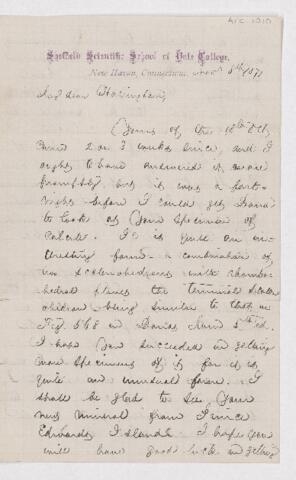 A.C. 1010
Sheffield Scientific School of Yale College.
New Haven, Connecticut, Nov 8th 1871
My dear Harrington
Yours of the 18th Oct
came 2 or 3 weeks since, and I
ought to have answered it more
promptly but it was a fort-
night before I could get Dana
to look at your specimen of
calcite. It is quite an in-
teresting form – a combination of
two scalenohedrons with rhombo-
hedral planes the terminal scalen
ohedron being similar to that in
Fig 568 in Danas Min 5th Ed.
I hope you succeeded in getting
more specimens of it for it is
quite an unusual form. I
shall be glad to see your
new mineral from Prince
Edwards Island. I hope you
will have good luck in getting